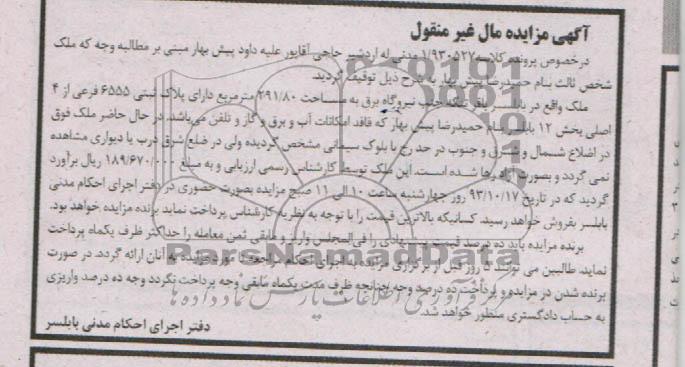 آگهی مزایده مال غیر منقول
درخصوص پرونده کلاسه ۱/۹۳۰۵۲۷ مدنی له اردشیر حاجی آقاپور علیه داود پیش بهار مبنی بر مطالبه وجه که ملک
شخص ثالث بنام حمیدرضا پیش بهار به شرح ذیل توقیف گردید.
ملک واقع در بابلسر باقرتنگه جنب نیروگاه برق به مساحت ۲۹۱/۸۰ مترمربع دارای پلاک ثبتی ۶۵۵۵ فرعی از ۴
اصلی بخش ۱۲ بابلسر بنام حمیدرضا پیش بهار که فاقد امکانات آب و برق و گاز و تلفن می‌باشد. در حال حاضر ملک فوق
در اضلاع شمال و شرق و جنوب در حد رج با بلوک سیمانی مشخص گردیده ولی در ضلع شرق درب یا دیواری مشاهده
نمی گردد و بصورت رها شده است. این ملک توسط کارشناس رسمی ارزیابی و به مبلغ ۱۸۹/۶۷۰/۰۰۰ ریال برآورد
گردید که در تاریخ ۹۳/۱۰/۱۷ روز چهارشنبه ساعت ۱۰ الی ۱۱ صبح مزایده بصورت حضوری در دفتر اجرای احکام مدنی
بابلسر بفروش خواهد رسید. کسانیکه بالاترین قیمت را با توجه به نظریه کارشناس پرداخت نماید برنده مزایده خواهد بود.
برنده مزایده باید ده درصد قیمت پیشنهادی را فی‌المجلس واریز و مابقی ثمن معامله را حداکثر ظرف یکماه پرداخت
نماید. طالبین می توانند ۵ روز قبل از برگزاری مزایده به اجرای احکام مراجعه تا مورد مزایده به آنان ارائه گردد. در صورت
برنده شدن در مزایده و پرداخت ده درصد وجه چنانچه ظرف مدت یکماه مابقی وجه پرداخت نگردد وجه ده درصد واریزی
به حساب دادگستری منظور خواهد شد.
دفتر اجرای احکام مدنی بابلسر
ParsNamadData